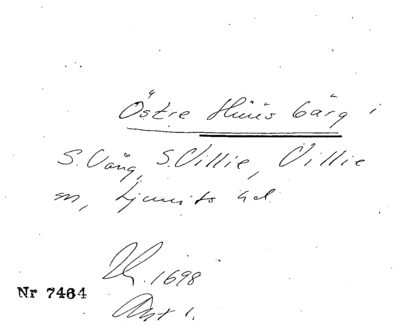 Östre Hüüs bärg i
S. Vång, S. Villie, Villie
sn, Ljunits hd
1698
Nr 7464
Akt 1.